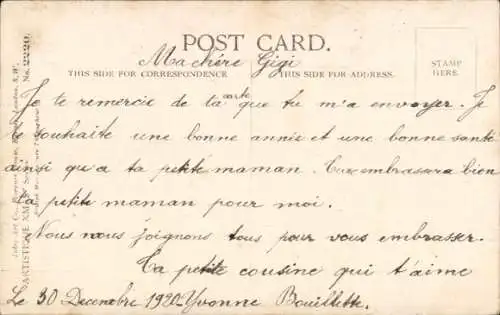 POST CARD.
Ma chére Gigi
THIS SIDE FOR CORRESPONDENCE
THIS SIDE FOR ADDRESS.
STAMP
HERE.
Je te remercie de ta carte que tu m'a envoyer. Je
te souhaite une bonne année et une bonne santé
ainsi qu'a ta petite maman. embrassera bien
ta petite maman pour moi.
Nous nous joignons tous pour vous embrasser.
Ta petite cousine qui t'aime
Le 30 Decembre 1920. Yvonne Bouillette.
No. 2220.